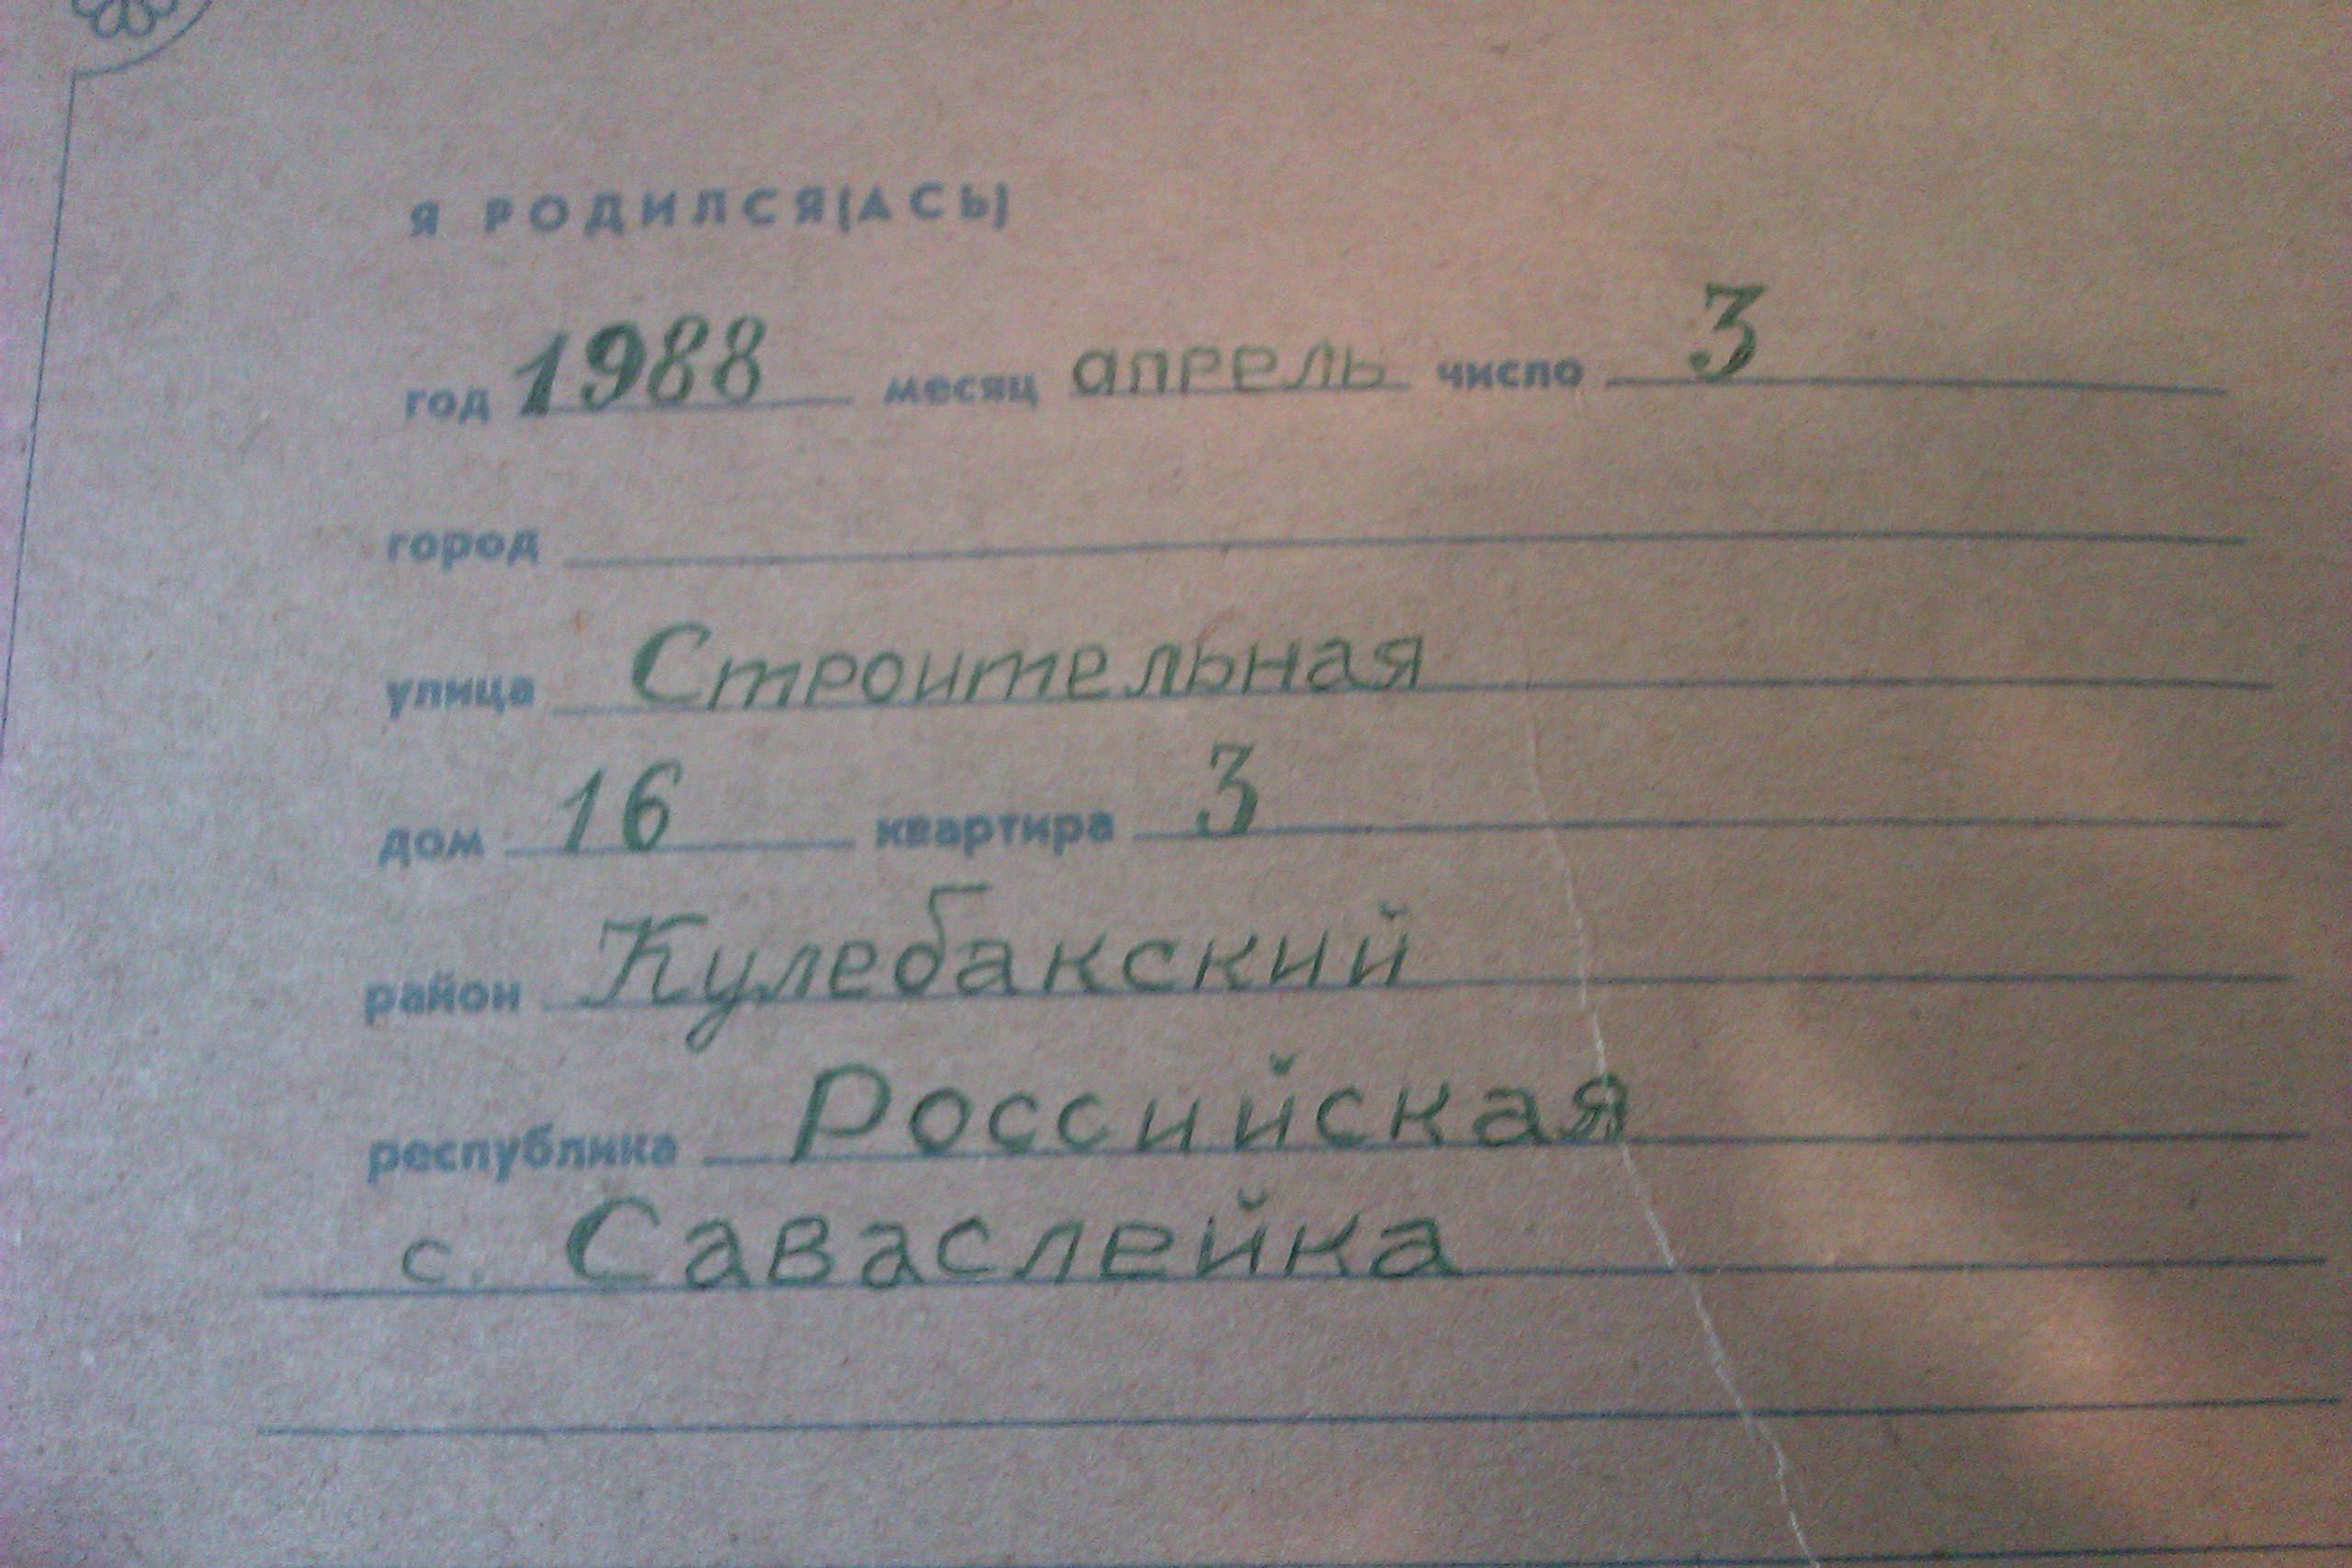 Я РОДИЛСЯ(АСЬ)
год 1988 месяц апрель число 3
город
улица Строительная
дом 16 квартира 3
район Кулебакский
республика Российская
с. Саваслейка